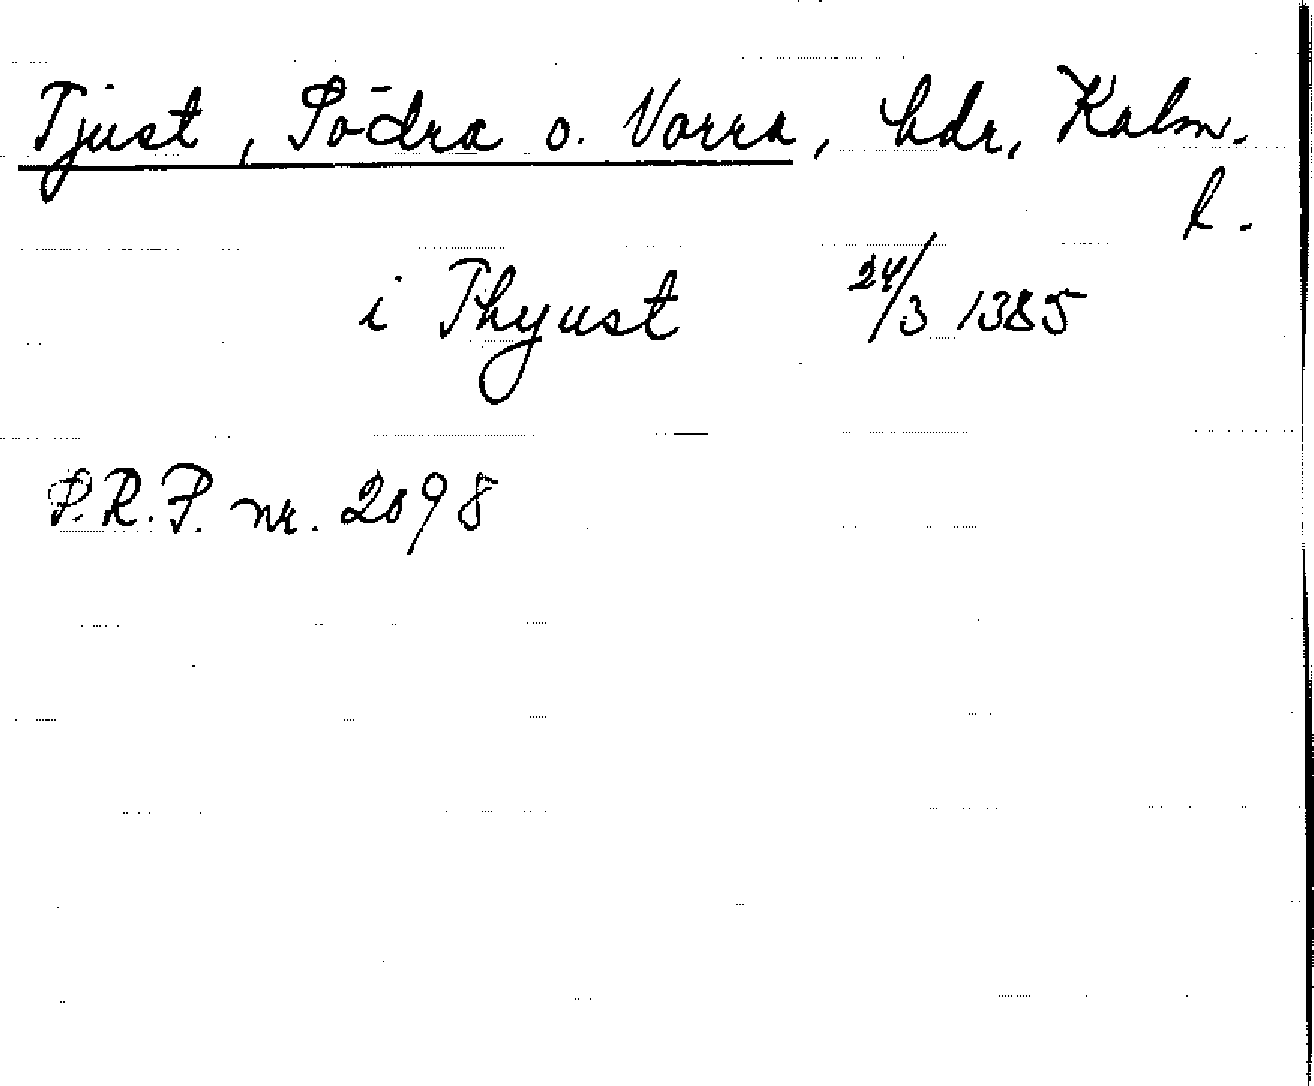 Tjust, Södra o. Norra, hdr, Kalm.
l.
i Thyust 24/3 1385
P.R.P. nr. 2098